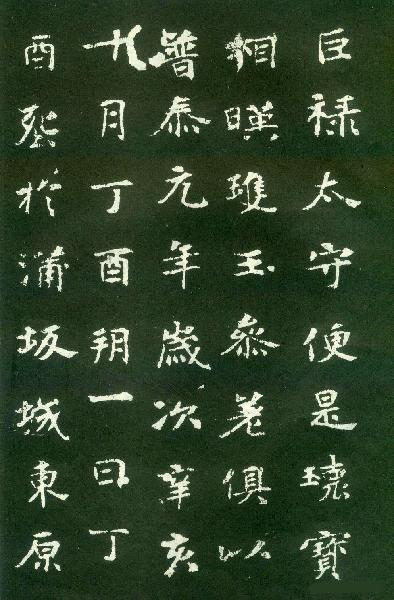 巨祿太守便是瓌寶
相暎瓊玉參差俱以
普泰元年歲次辛亥
十月丁酉朔一日丁
酉塟於蒲坂城東原